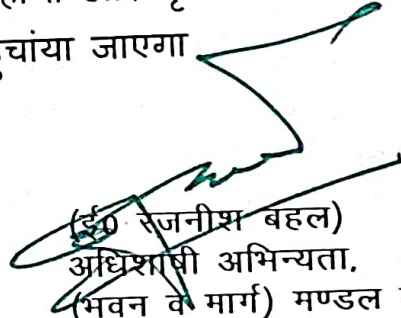 चांया जाएगा
(ई0 रजनीश बहल)
अधिशाषी अभिन्यता.
(भवन व मार्ग) मण्डल